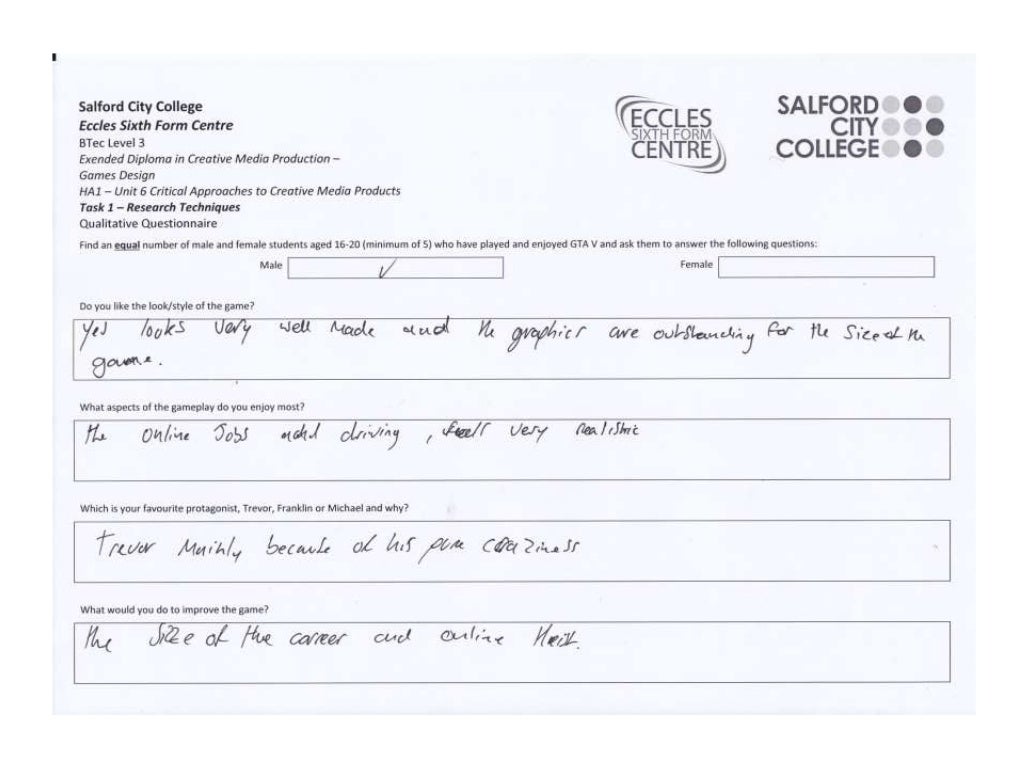 Salford City College
Eccles Sixth Form Centre
BTec Level 3
Exended Diploma in Creative Media Production –
Games Design
HA1 – Unit 6 Critical Approaches to Creative Media Products
Task 1 – Research Techniques
Qualitative Questionnaire
ECCLES
SIXTH FORM
CENTRE
SALFORD
CITY
COLLEGE
Find an equal number of male and female students aged 16-20 (minimum of 5) who have played and enjoyed GTA V and ask them to answer the following questions:
Male ✓ Female
Do you like the look/style of the game?
Yes looks very well made and the graphics are outstanding for the size of the
game.
What aspects of the gameplay do you enjoy most?
the online Jobs and driving, feels very realistic
Which is your favourite protagonist, Trevor, Franklin or Michael and why?
Trevor Mainly because of his pure craziness
What would you do to improve the game?
the size of the career and online